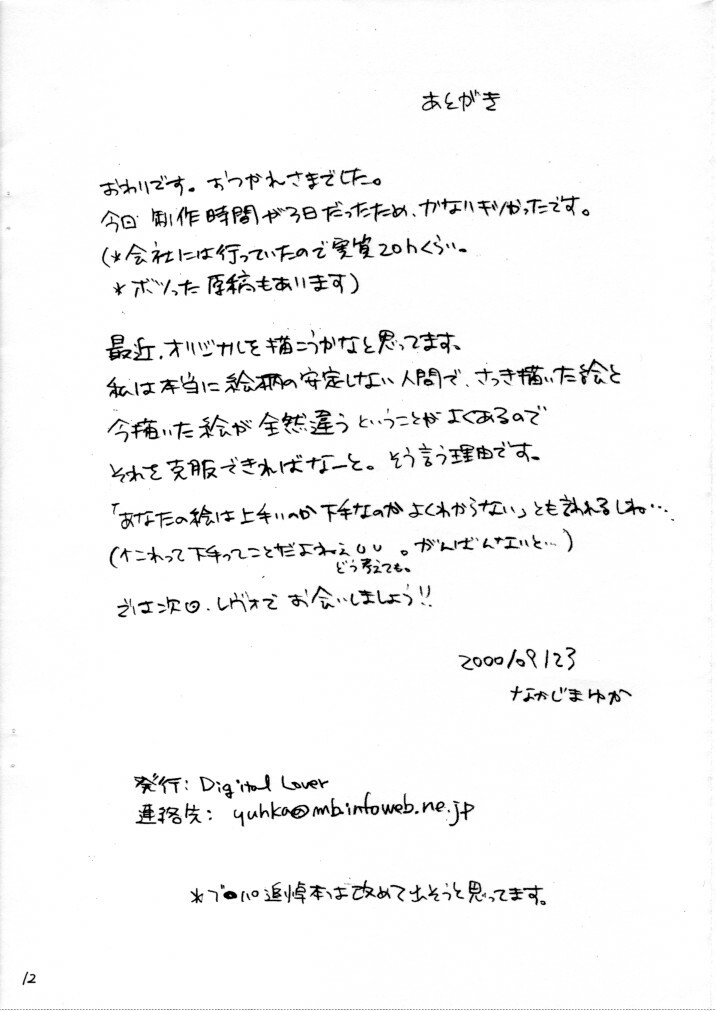 あとがき
おわりです。おつかれさまでした。
今回 制作時間が3日だったため、かなりギリだったです。
(*会社には行っていたので実質20hくらい。
*ボツった原稿もあります)
最近、オリジナルを描こうかなと思ってます。
私は本当に絵柄の安定しない人間で、さっき描いた絵と
今描いた絵が全然違うということがよくあるので
それを克服できればなーと。そう言う理由です。
「あなたの絵は上手いのか下手なのかよくわからない」とも言われるしね…
(これって下手ってことだよねぇ 。がんばんないと…)
どう考えても。
では次回、レヴォでお会いしましょう!!
2000/09/23
なかじまゆか
発行: Digital Lover
連絡先: yuhka@mb.infoweb.ne.jp
*プ●パ追悼本は改めて出そうと思ってます。
12